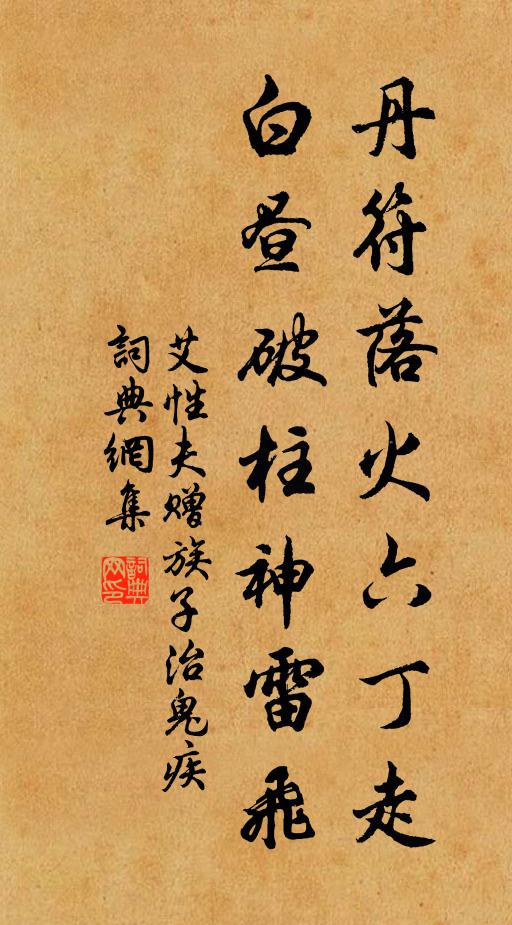 丹符落火六丁走
白昼破柱神雷飛
艾性夫赠族子治鬼疾
詞典網集
詞典网印